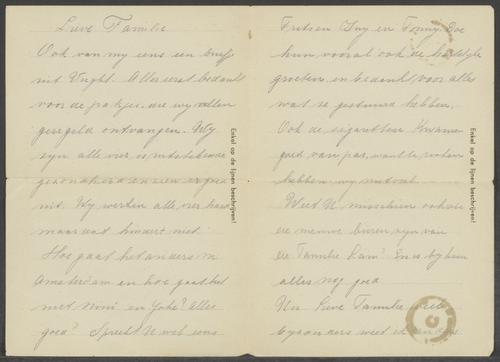 Lieve Familie
Ook van my eens een briefje
uit Vught. Allereerst bedankt
voor de pakjes, die wy allen
geregeld ontvangen. Wy
zyn alle vier in uitstekende
gezondheid en zien er goed
uit. Wy werken alle vier hard
maar dat hindert niet.
Hoe gaat het anders in
Amsterdam en hoe gaat het
met Nini en Joke? Alles
goed? Spreekt U wel eens
Enkel op de lijnen beschrijven!
Frits en Iny en Tonny. Doe
hun vooral ook de hartelyke
groeten en bedankt voor alles
wat ze gestuurd hebben.
Ook de sigaretten kwamen
goed van pas, want te rooken
hebben wy niet veel.
Weet U misschien ook wie
de nieuwe buren zyn van
de Familie Cam? En is by hun
alles nog goed
Nu Lieve Familie veel
byzonders weet ik
Enkel op de lijnen beschrijven!